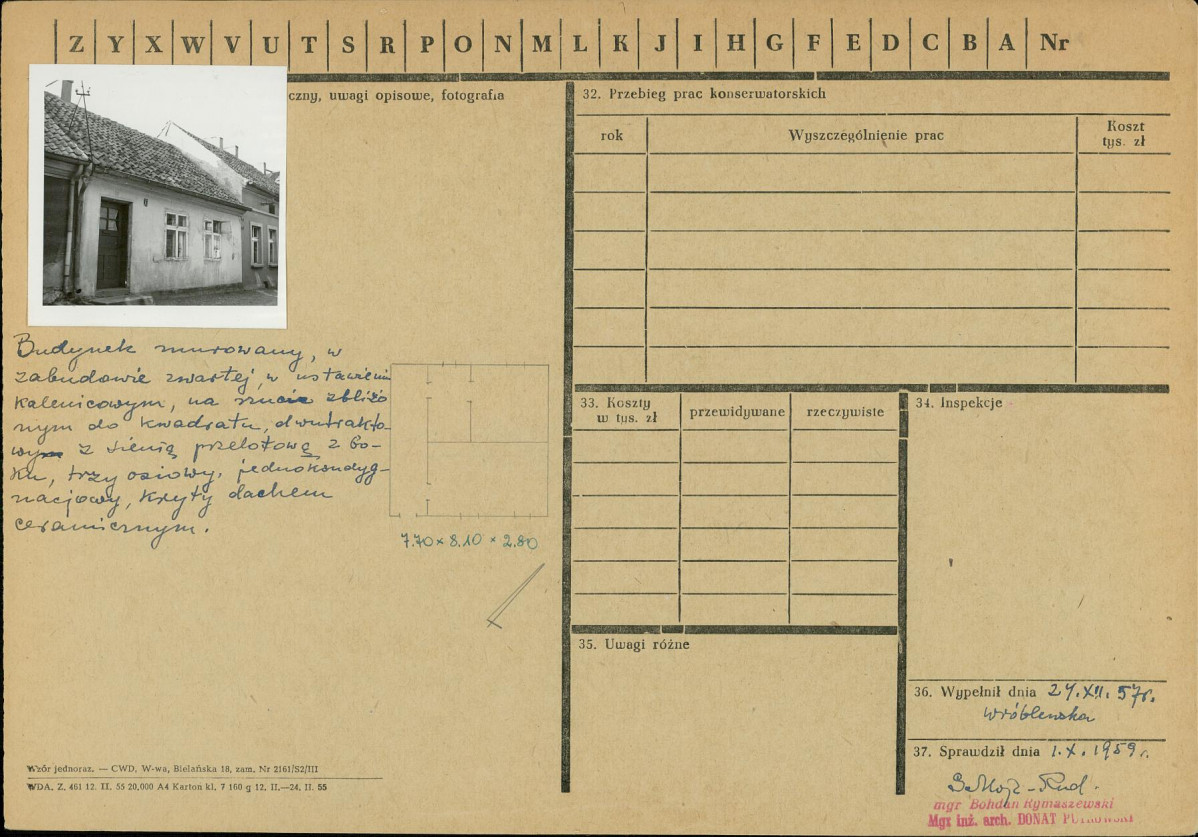 Z Y X W V U T S R P O N M L K J I H G F E D C B A Nr
czny, uwagi opisowe, fotografia
Budynek murowany, w
zabudowie zwartej, w ustawieniu
kalenicowym, na rzucie zbliżo
nym do kwadratu, dwutrakto-
wym z sienią przelotową z bo-
ku, trzy osiowy, jednokondyg-
nacjowy, kryty dachem
ceramicznym.
7.70 × 8.10 × 2.80
Wzór jednoraz. — CWD, W-wa, Bielańska 18, zam. Nr 2161/S2/III
WDA. Z. 461 12. II. 55 20,000 A4 Karton kl. 7 160 g 12. II.—24. II. 55
32. Przebieg prac konserwatorskich
rok Wyszczególnienie prac Koszt
tys. zł
33. Koszty
w tys. zł
przewidywane rzeczywiste
34. Inspekcje
35. Uwagi różne
36. Wypełnił dnia 24.XII.57r.
Wróblewska
37. Sprawdził dnia 1.X.1959r.
mgr Bohdan Rymaszewski
Mgr inż. arch. DONAT